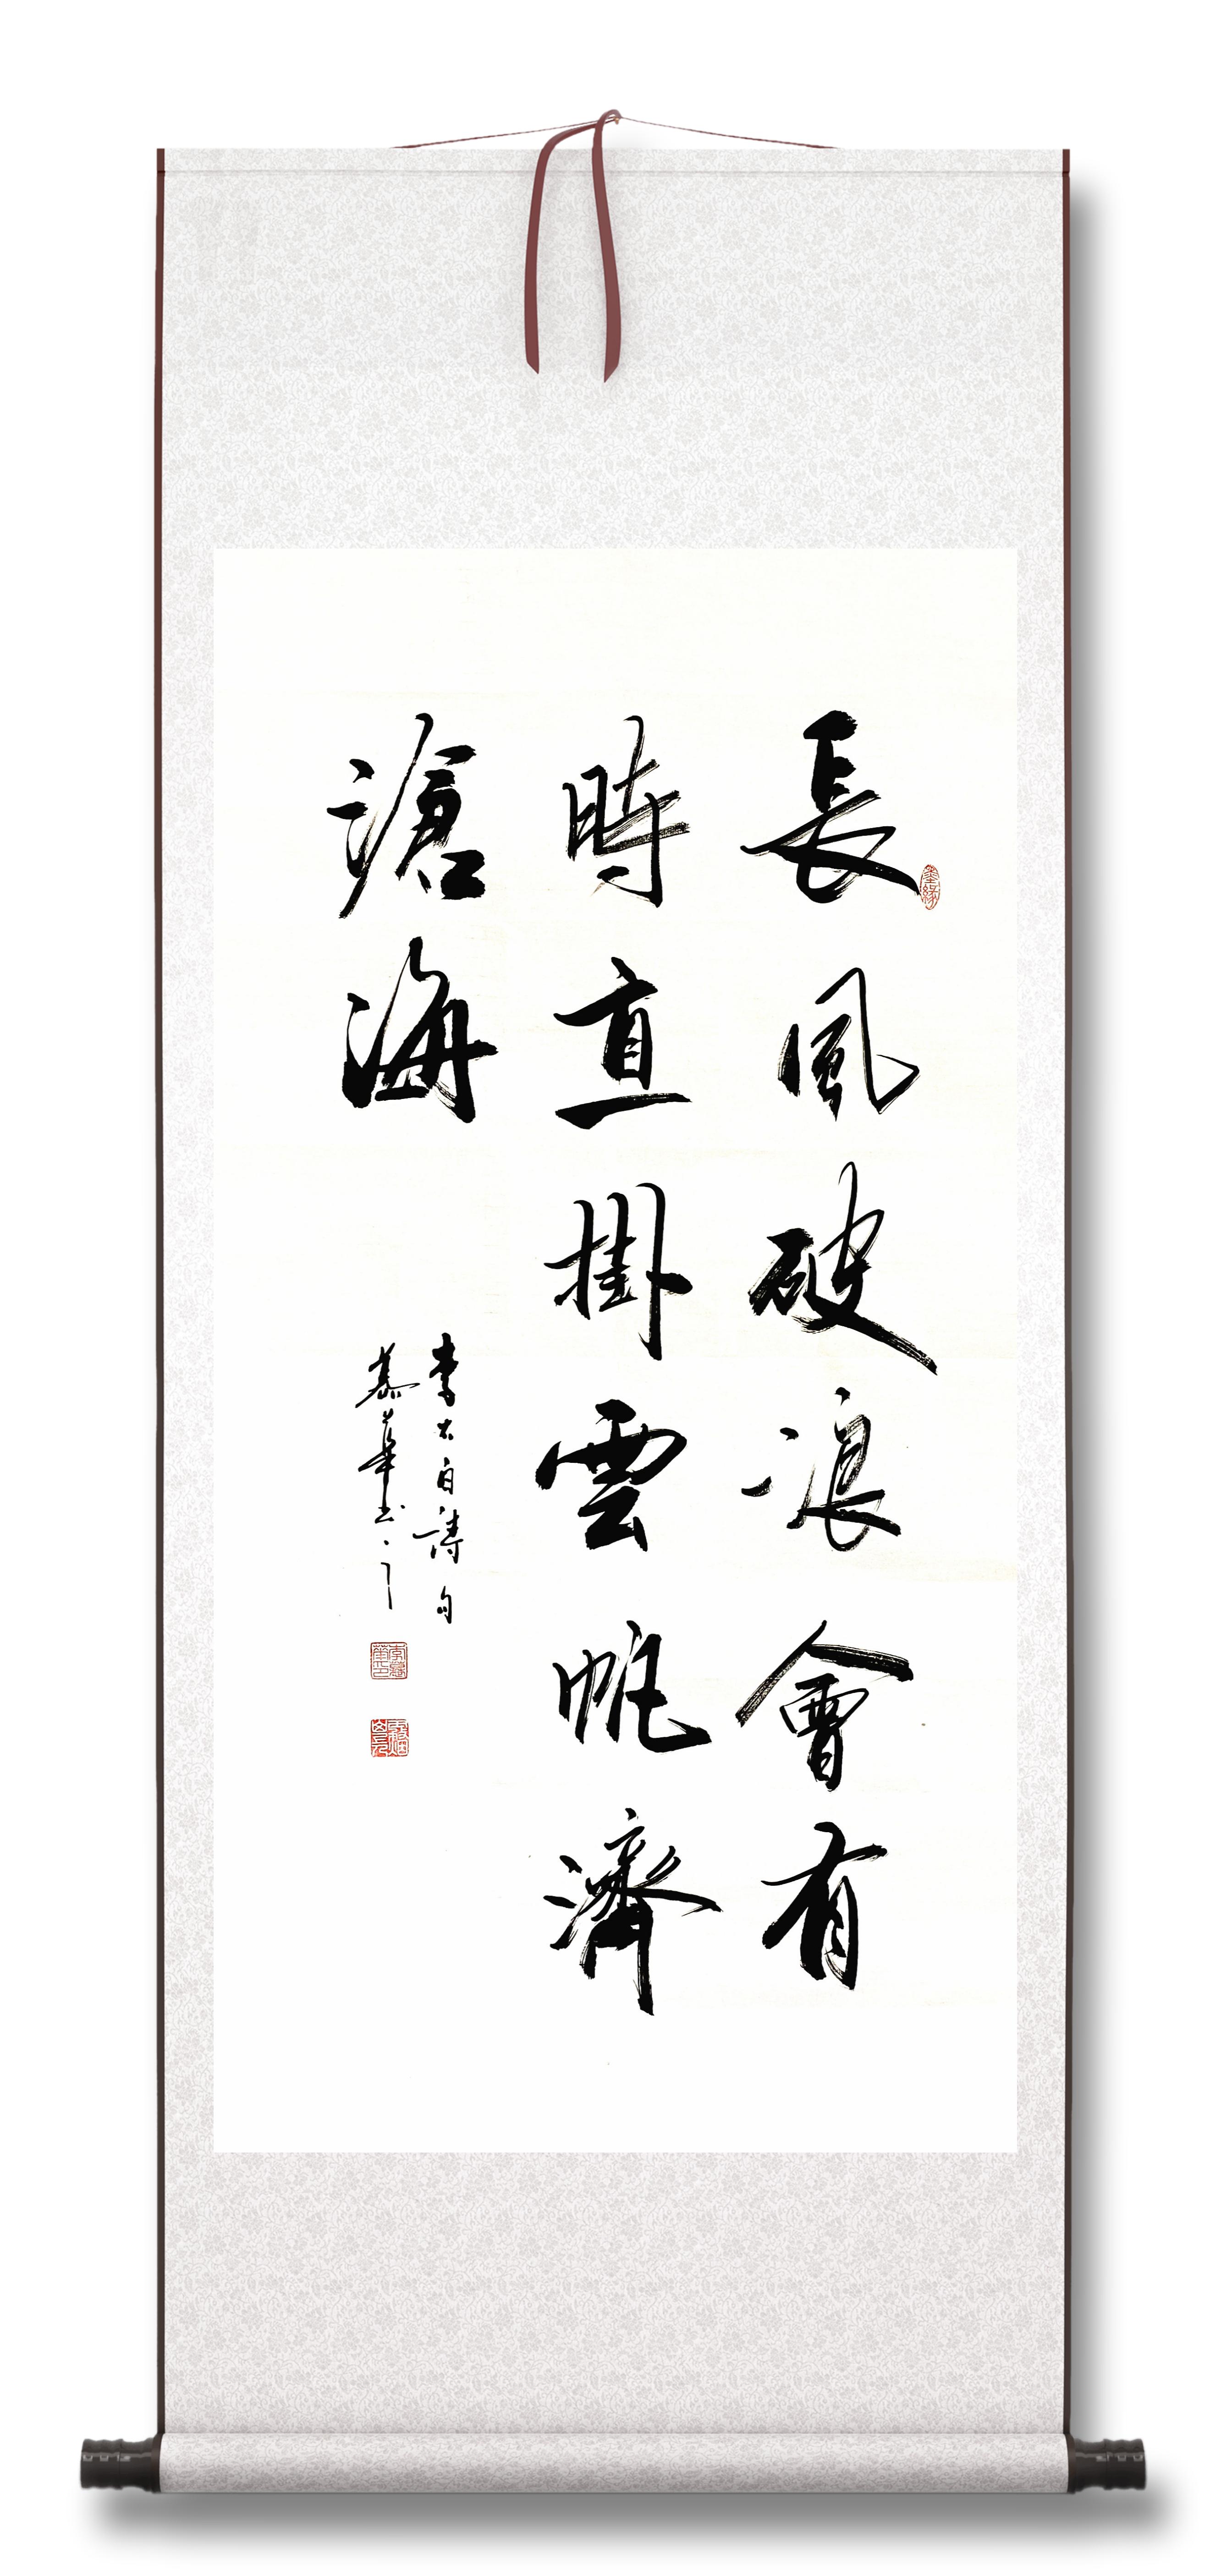 長風破浪會有
時直掛雲帆濟
滄海
李太白詩句
慕華書
墨緣